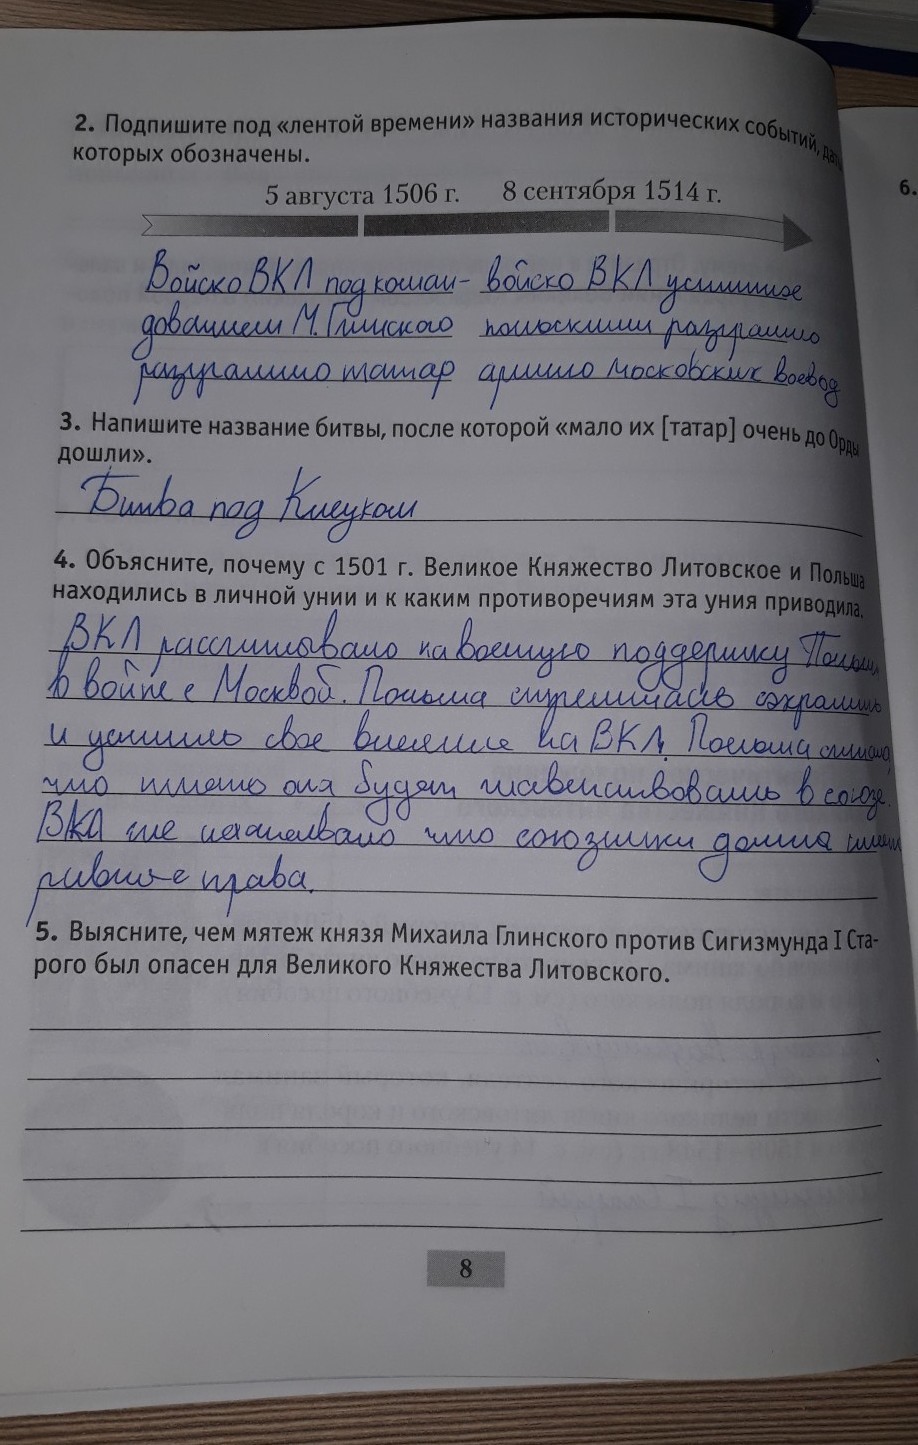 2. Подпишите под «лентой времени» названия исторических событий, даты
которых обозначены.
6.
5 августа 1506 г. 8 сентября 1514 г.
Войско ВКЛ под коман- войско ВКЛ усиленное
дованием М. Глинского польскими разгромило
разгромило татар армию московских воевод
3. Напишите название битвы, после которой «мало их [татар] очень до Орды
дошли».
Битва под Клецком
4. Объясните, почему с 1501 г. Великое Княжество Литовское и Польша
находились в личной унии и к каким противоречиям эта уния приводила.
ВКЛ рассчитывало на военную поддержку Польши
в войне с Москвой. Польша стремилась сохранить
и усилить свое влияние на ВКЛ. Польша считала,
что именно она будет главенствовать в союзе.
ВКЛ же настаивало что союзники должны иметь
равные права.
5. Выясните, чем мятеж князя Михаила Глинского против Сигизмунда I Ста-
рого был опасен для Великого Княжества Литовского.
8